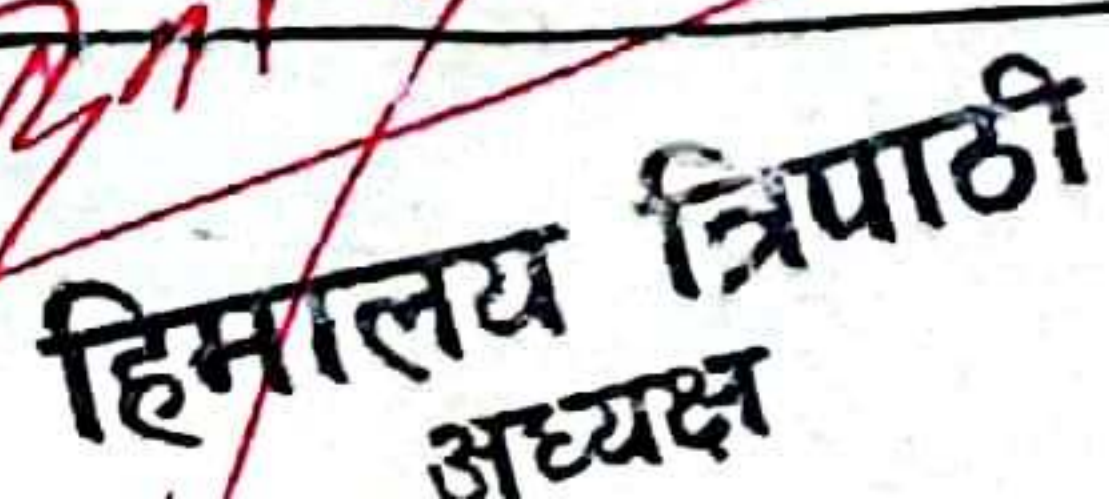 हिमालय त्रिपाठी
अध्यक्ष